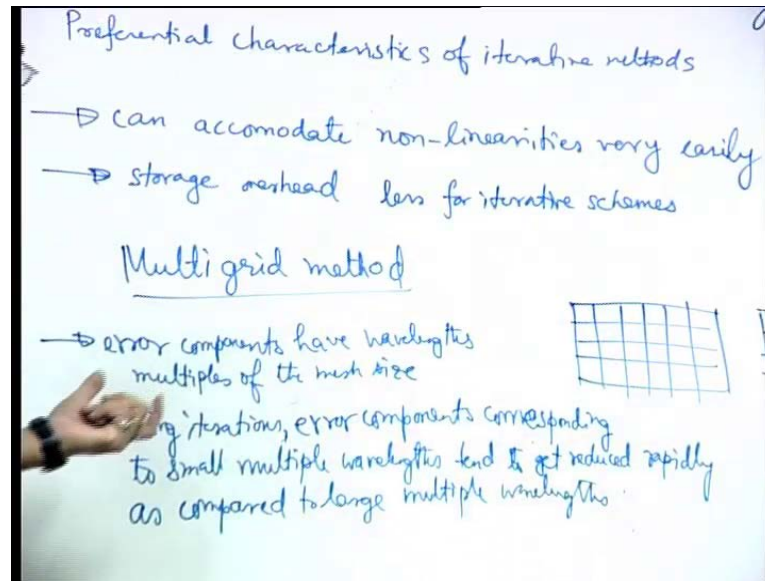 Preferential characteristics of iterative methods
can accomodate non-linearities very easily
storage overhead less for iterative schemes
Multigrid method
error components have wavelengths
multiples of the mesh size
iterations, error components corresponding
to small multiple wavelengths tend to get reduced rapidly
as compared to large multiple wavelengths.